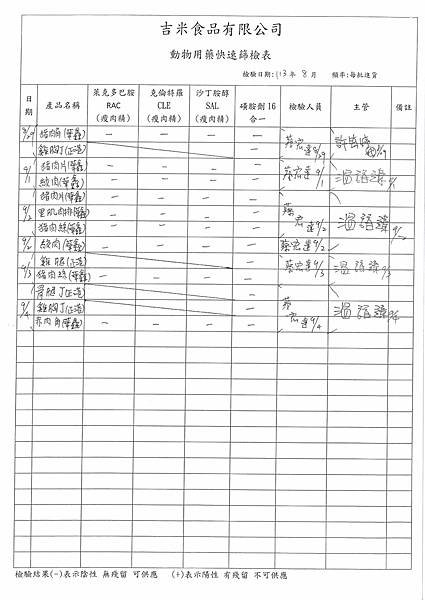 吉米食品有限公司
動物用藥快速篩檢表
檢驗日期:113年 8月 頻率:每批進貨
日期 產品名稱 萊克多巴胺 RAC (瘦肉精) 克倫特羅 CLE (瘦肉精) 沙丁胺醇 SAL (瘦肉精) 磺胺劑16合一 檢驗人員 主管 備註
8/29 豬肉角(華鑫) － － － －
雞胸丁(正浩) － 蔡宏達8/29
9/1 豬肉片(華鑫) － － － －
絞肉(華鑫) － － － － 蔡宏達9/1
豬肉片(華鑫) － － － －
9/2 里肌肉排(華鑫) － － － －
豬肉絲(華鑫) － － － － 蔡宏達9/2
9/2 絞肉(華鑫) － － － － 蔡宏達9/2
9/3 雞腿(正浩) － 蔡宏達9/3
豬肉絲(華鑫) － － － －
骨腿丁(正浩) －
9/4 雞胸丁(正浩) －
肉角(華鑫) － － － － 蔡宏達9/4
檢驗結果(-)表示陰性 無殘留 可供應 (+)表示陽性 有殘留 不可供應